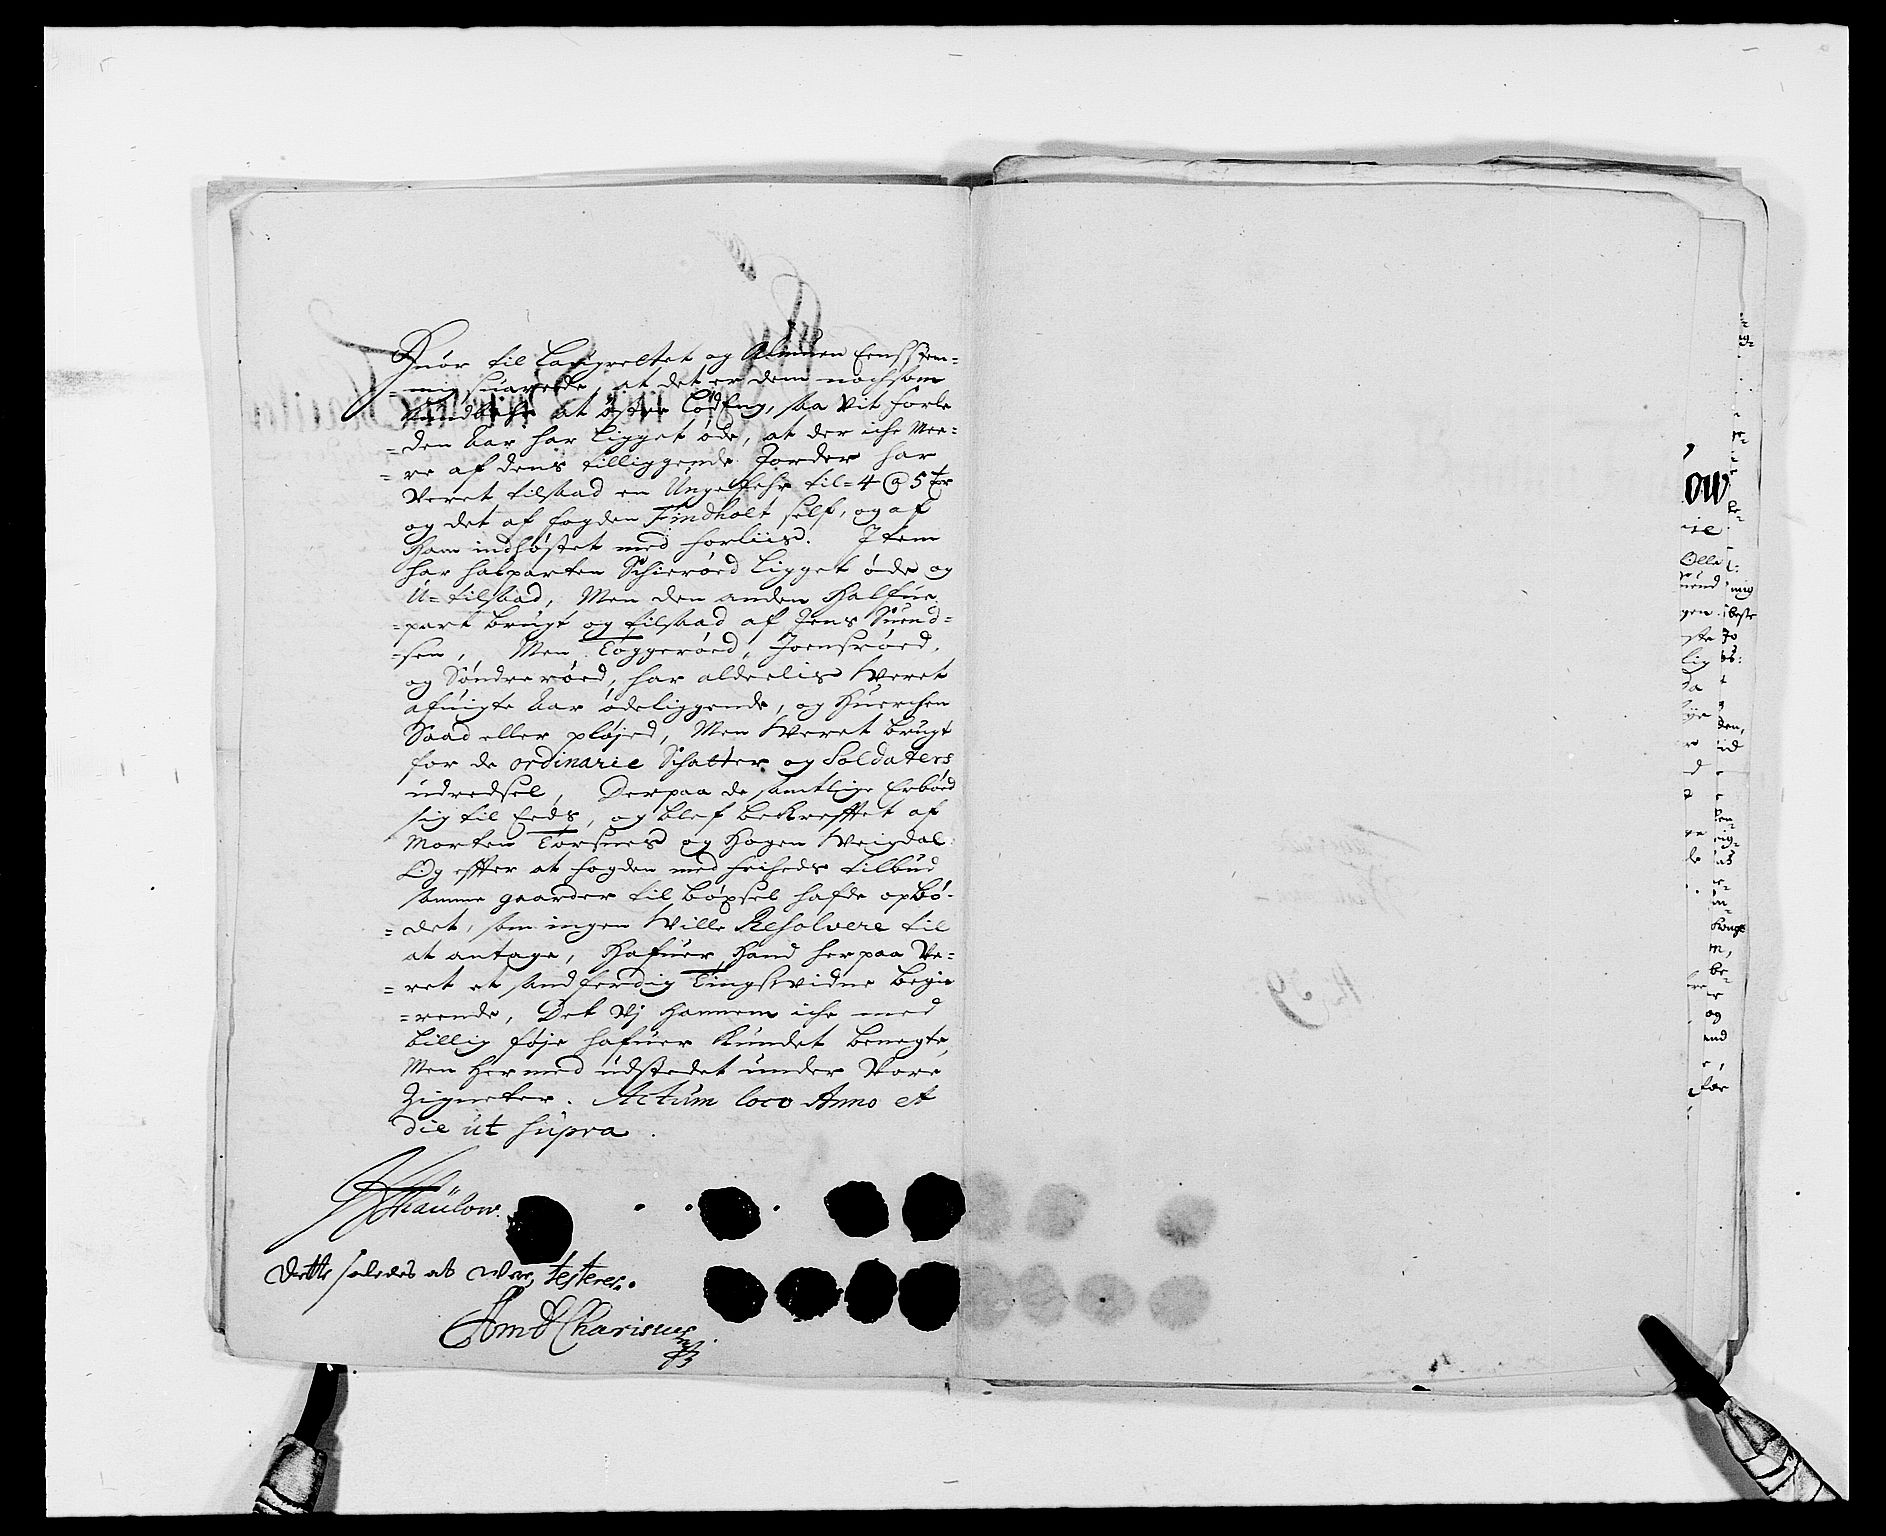 Huor til Laugrettet og Almuen Eenstem-
=mig suarede, at det er dem nochsom
at øster Lød Eng, saa vit forle
=den Aar har ligget øde, at der iche mee=
=re af dens tilliggende Jorder har
veret tilsaad en Ungefehr til= 4 @ 5 tør
og det af fogden Findholt self, og af
ham indhøstet med forliis. Item
har halparten Schierøed ligget øde og
U=tilsaad, Men den anden halfue
=part brugt og tilsaad af Jens Suend=
=sen, Men Toggerøed, Joensrøed,
og Søndre røed, har aldeelis Weret
afuigte Aar ødeliggende, og huerchen
Saad eller pløjed, Men Weret brugt
for de ordinarie Schatter og Soldaters
udredsel, Derpaa de samtlige Erbøed
sig til Eeds, og blef bekrefftet af
Morten Torsnes og Hagen Weigdal.
Og effter at fogden med friheds tilbud
samme gaarder til bøxsel hafde opbø-
=det, som ingen Wille Resolvere til
at antage, Hafuer Hand herpaa Ve=
=ret et sandferdig Tingswidne begie
=rende, Det Vj hannem iche med
billig føje hafuer kundet benegte,
Men hermed udstedet under Vore
Zigneter. Actum loco Anno et
die ut supra.
Paülow.
Dette saledes at vere, testerer.
Amd Charisius